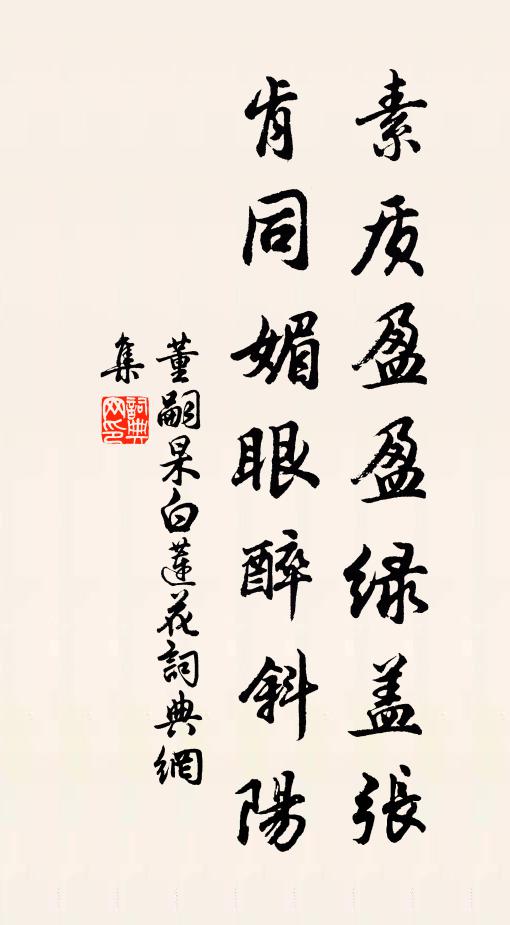 素质盈盈绿盖张
肯同媚眼醉斜陽
董嗣杲白蓮花詞典網
集
詞典
网印